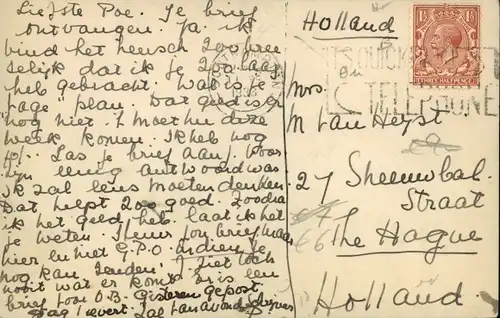 Liefste Poe. Je brief
ontvangen. Ja ik
vind het heusch zoo
selijk dat ik je zoo laag
heb gebracht. Wat is je
"page" plan. Dat ged is er
nog niet. 't Moet nu deze
week komen. Ik heb nog
Las je brief aan voor
antwoord was
ik zal eens moeten denken
Dat helpt zoo goed. Zoodra
ik het geld heb laat ik het
je weten. Stuur jou brief maar
hier en met G.P.O. indien je
nog kan zenden. 't Ziet toch
nooit wat er komt. Er is een
brief voor O.B. Gisteren gepost.
Dag lievert. Zal vanavond schrijven
Holland
POSTAGE REVENUE
THREE HALFPENCE
QUICK
TELEPHONE
Mrs
M van Heyst
27 Sheeuwbal
Straat
The Hague
Holland.